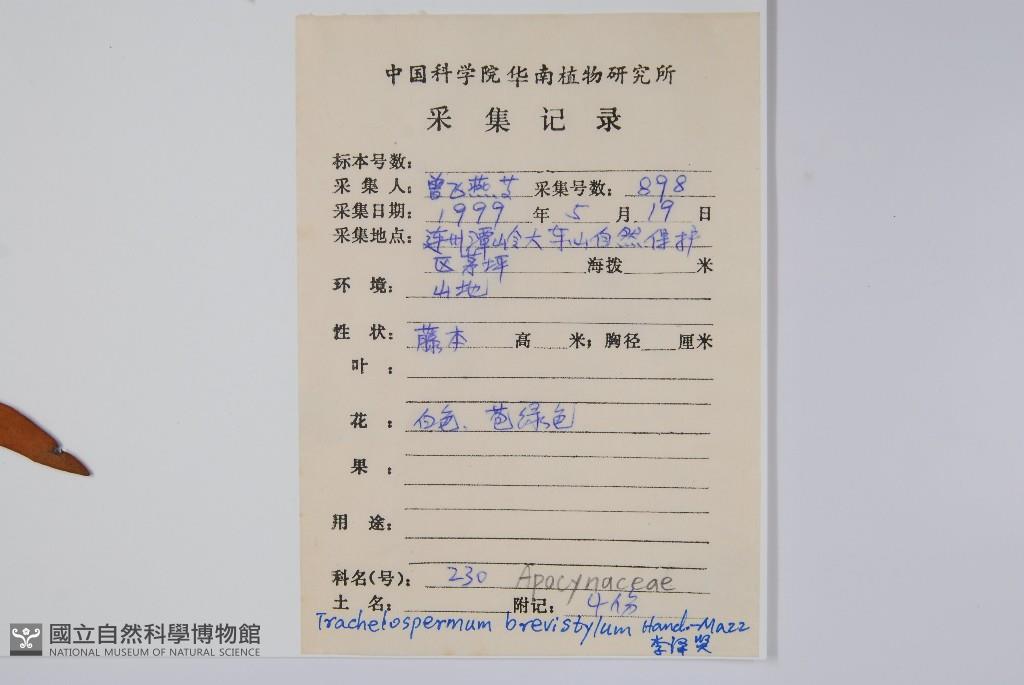 中国科学院华南植物研究所
采集记录
标本号数：
采集人：曾飞燕等 采集号数：898
采集日期：1999 年 5 月 19 日
采集地点：连州潭岭大东山自然保护
区茅坪 海拨 米
环境：山地
性状：藤本 高 米；胸径 厘米
叶：
花：白色、苞绿色
果：
用途：
科名(号)：230 Apocynaceae
土名： 附记：4份
Trachelospermum brevistylum Hand.-Mazz
李泽贤
國立自然科學博物館
NATIONAL MUSEUM OF NATURAL SCIENCE